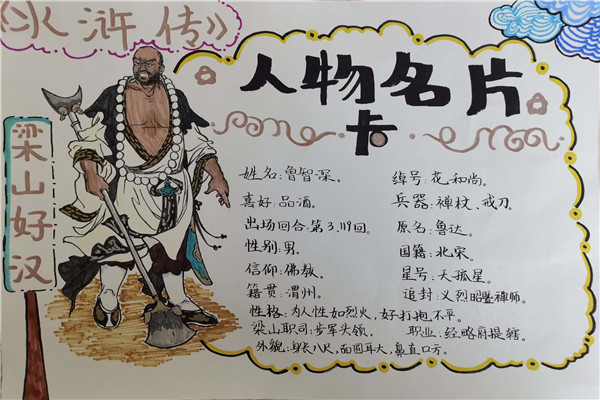 《水浒传》
梁山好汉
人物名片
卡
姓名:鲁智深。 绰号:花和尚。
喜好:品酒。 兵器:禅杖、戒刀。
出场回合:第3,119回。 原名:鲁达。
性别:男。 国籍:北宋。
信仰:佛教。 星号:天孤星。
籍贯:渭州。 追封:义烈昭暨禅师。
性格:为人性如烈火,好打抱不平。
梁山职司:步军头领。 职业:经略府提辖。
外貌:身长八尺,面圆耳大,鼻直口方。